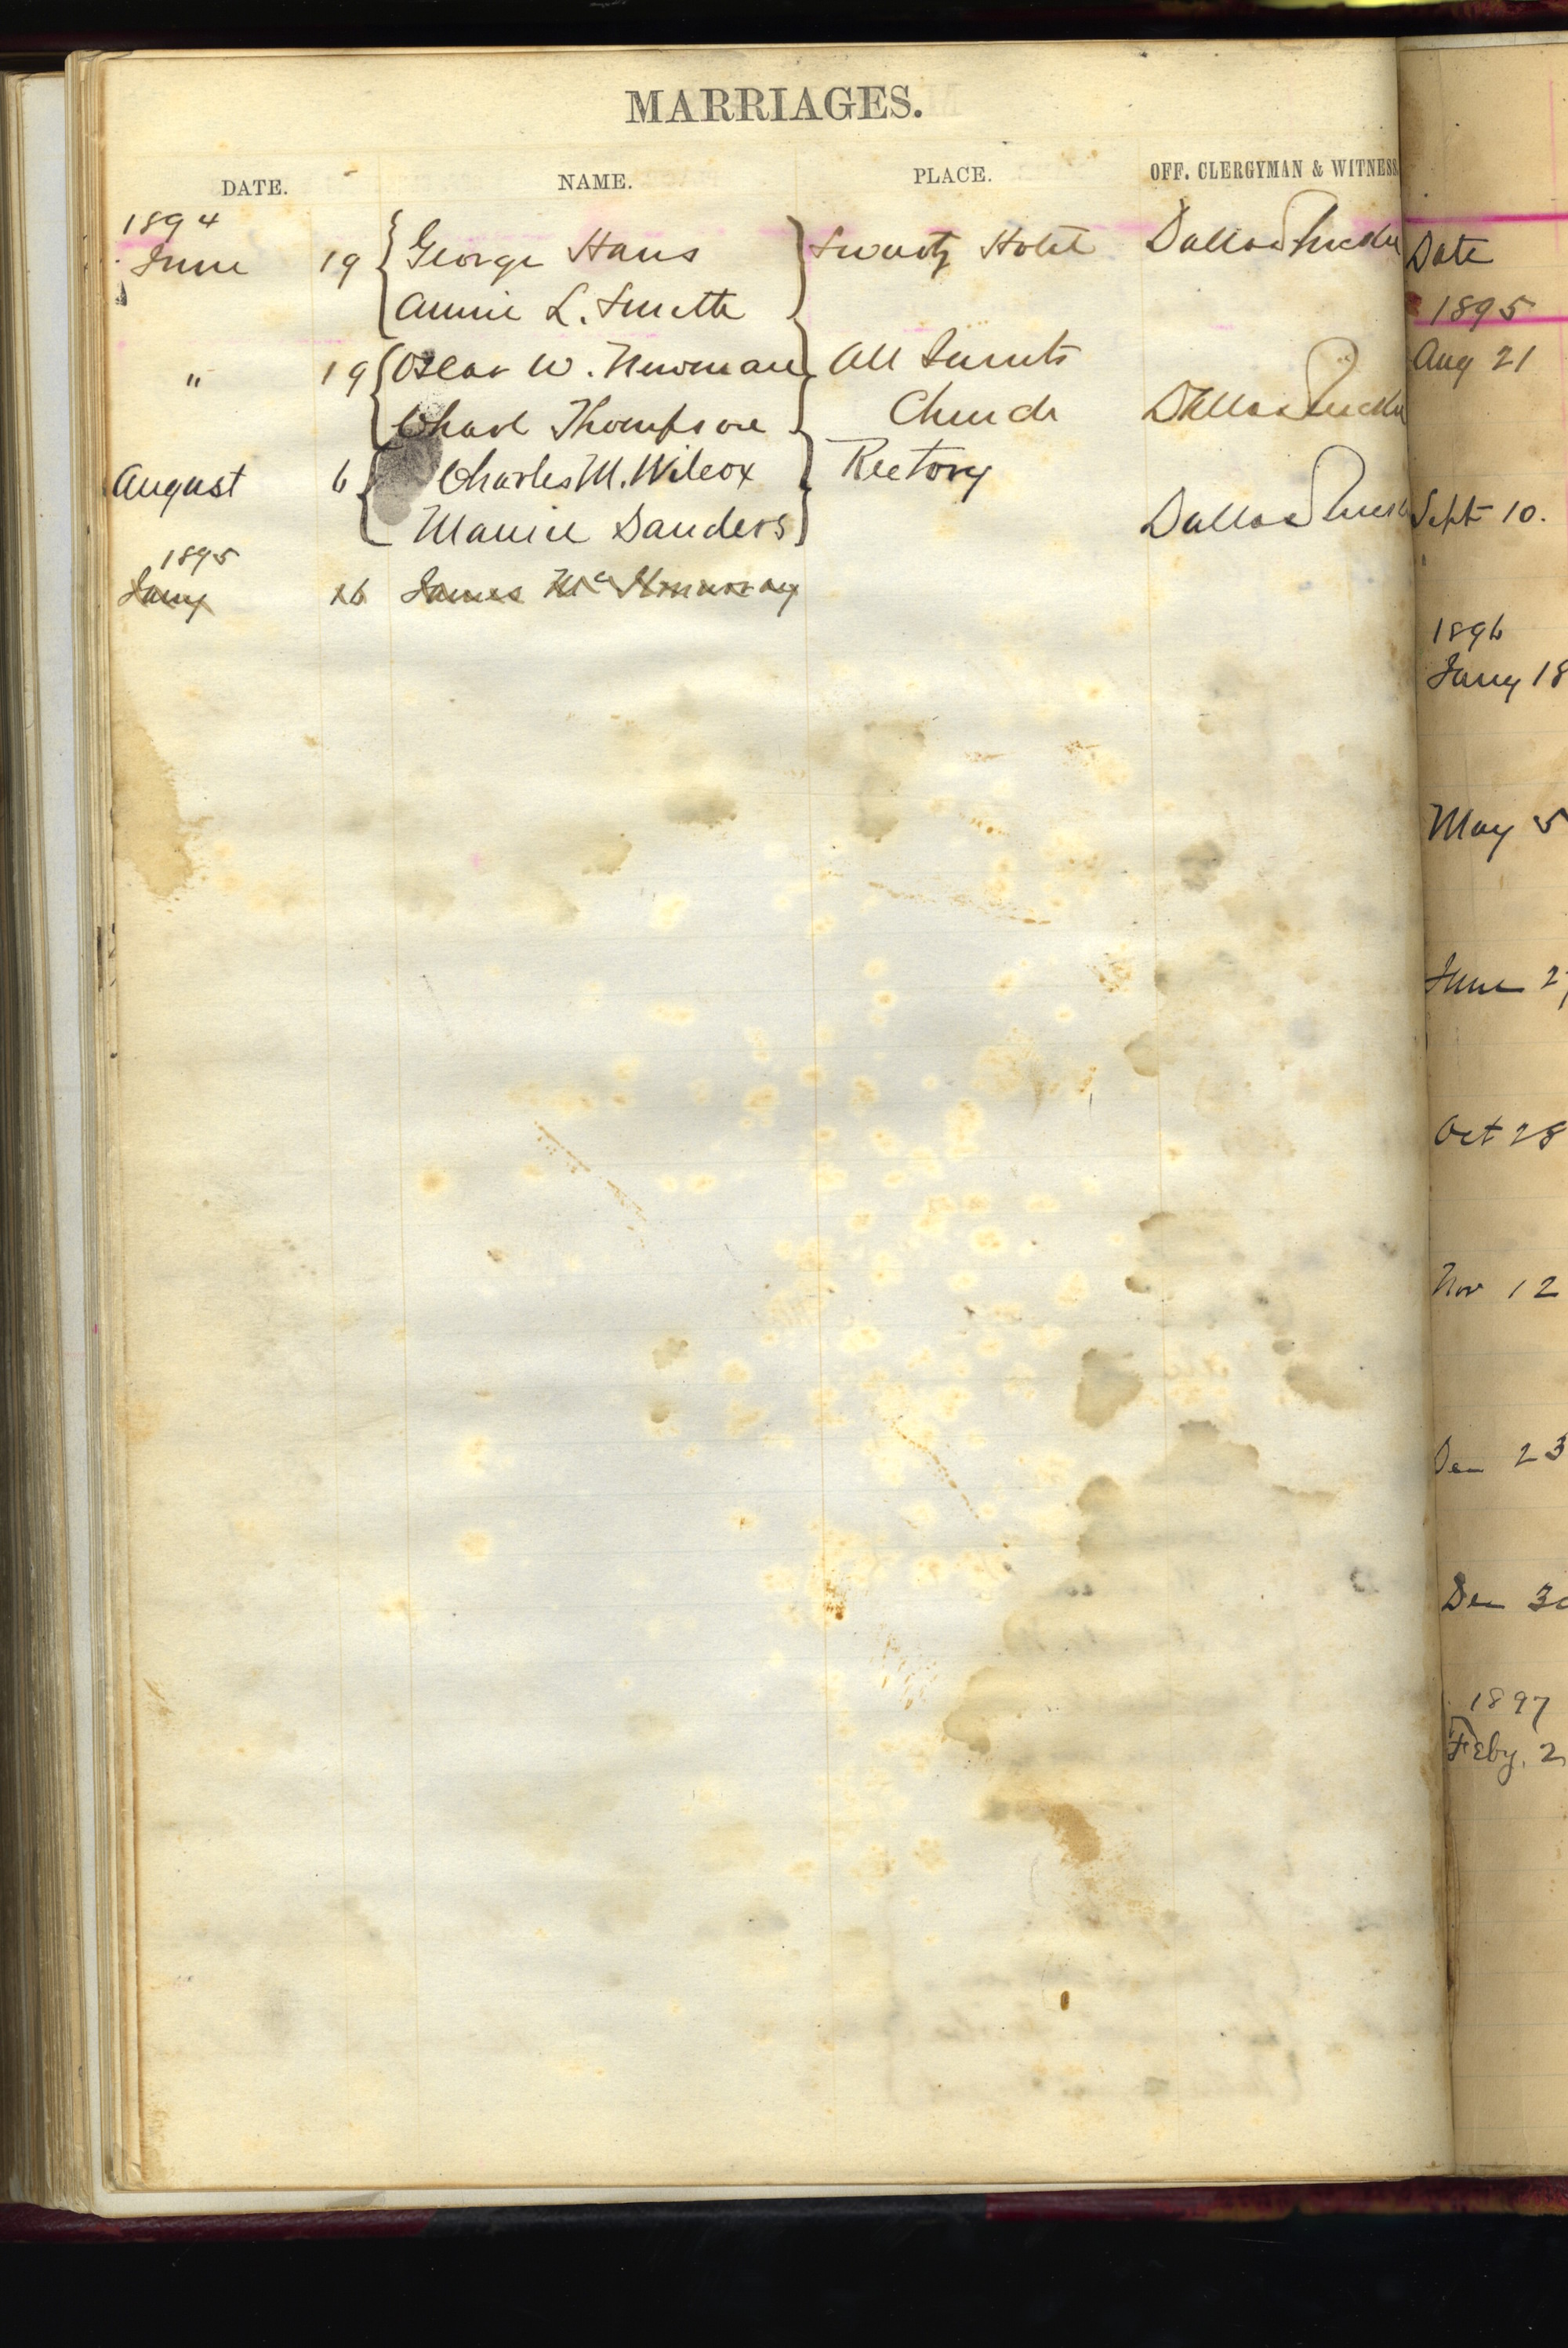 MARRIAGES.
DATE. NAME. PLACE. OFF. CLERGYMAN & WITNESS
1894
June 19 George Haus Swartz Hotel Dallas
Annie L. Smith
" 19 Oscar W. Newman All Saints
Thompson Church Dallas
August 6 Charles M. Wilcox Rectory
Mamie Sanders Dallas
1895
Jany 26 James
Date
1895
Aug 21
Sept 10.
1896
Jany 18
May 5
June 27
Oct 28
Nov 12
Dec 23
Dec 30
1897
Feby. 2